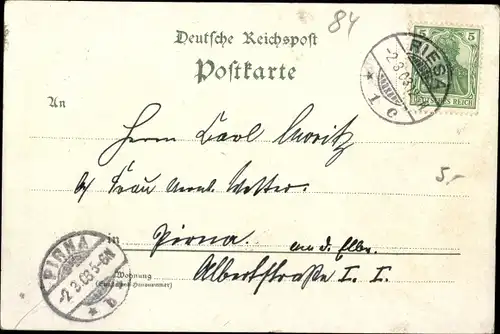 84
Deutsche Reichspost
Postkarte
5
5
RIESA
-2.3.03
* 1 c
DEUTSCHES REICH
An
Herrn Carl Moritz
5.-
p/ Frau Wetter.
in Pirna. an d. Elbe.
PIRNA
-2.3.03 5-6N
* b
Wohnung
(Straße und Hausnummer)
Albertstraße I. I.